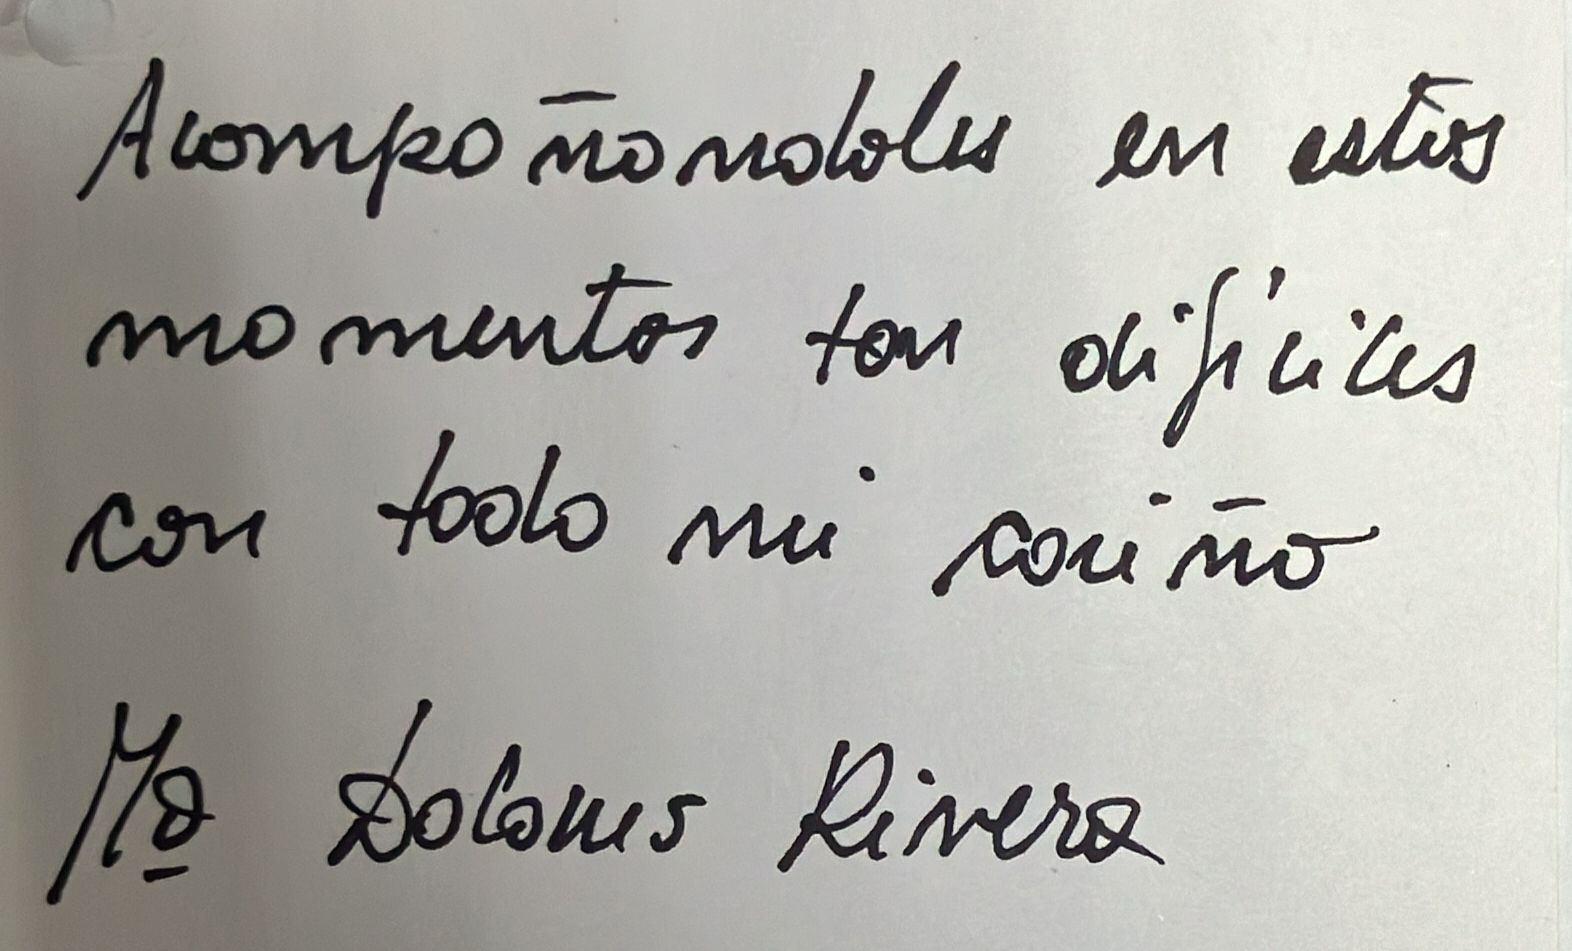 Acompañandoles en estos
momentos tan difíciles
con todo mi cariño
Mª Dolores Rivera